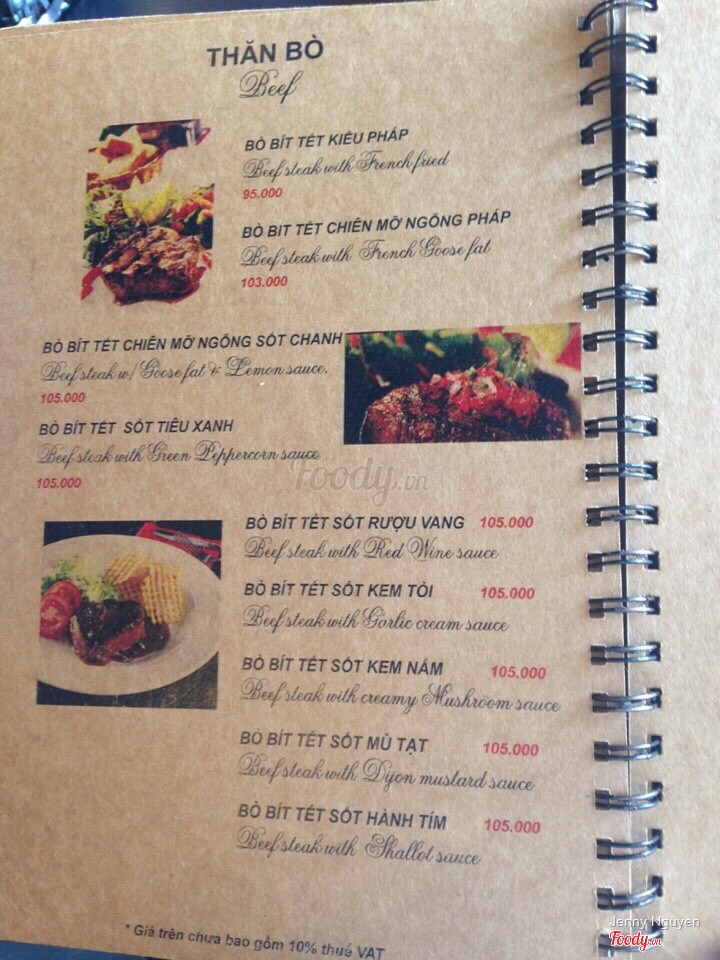 THĂN BÒ
Beef
BÒ BÍT TẾT KIỂU PHÁP
Beef steak with French fried
95.000
BÒ BIT TẾT CHIÊN MỠ NGỖNG PHÁP
Beef steak with French Goose fat
103.000
BÒ BÍT TẾT CHIÊN MỠ NGỖNG SỐT CHANH
Beef steak w/ Goose fat & Lemon sauce.
105.000
BÒ BÍT TẾT SỐT TIÊU XANH
Beef steak with Green Peppercorn sauce
105.000
Foody.vn
BÒ BÍT TẾT SỐT RƯỢU VANG 105.000
Beef steak with Red Wine sauce
BÒ BÍT TẾT SỐT KEM TỎI 105.000
Beef steak with Gorlic cream sauce
BÒ BÍT TẾT SỐT KEM NẤM 105.000
Beef steak with creamy Mushroom sauce
BÒ BÍT TẾT SỐT MÙ TẠT 105.000
Beef steak with Dijon mustard sauce
BÒ BÍT TẾT SỐT HÀNH TÍM 105.000
Beef steak with Shallot sauce
* Giá trên chưa bao gồm 10% thuế VAT
Jenny Nguyen
Foody.vn